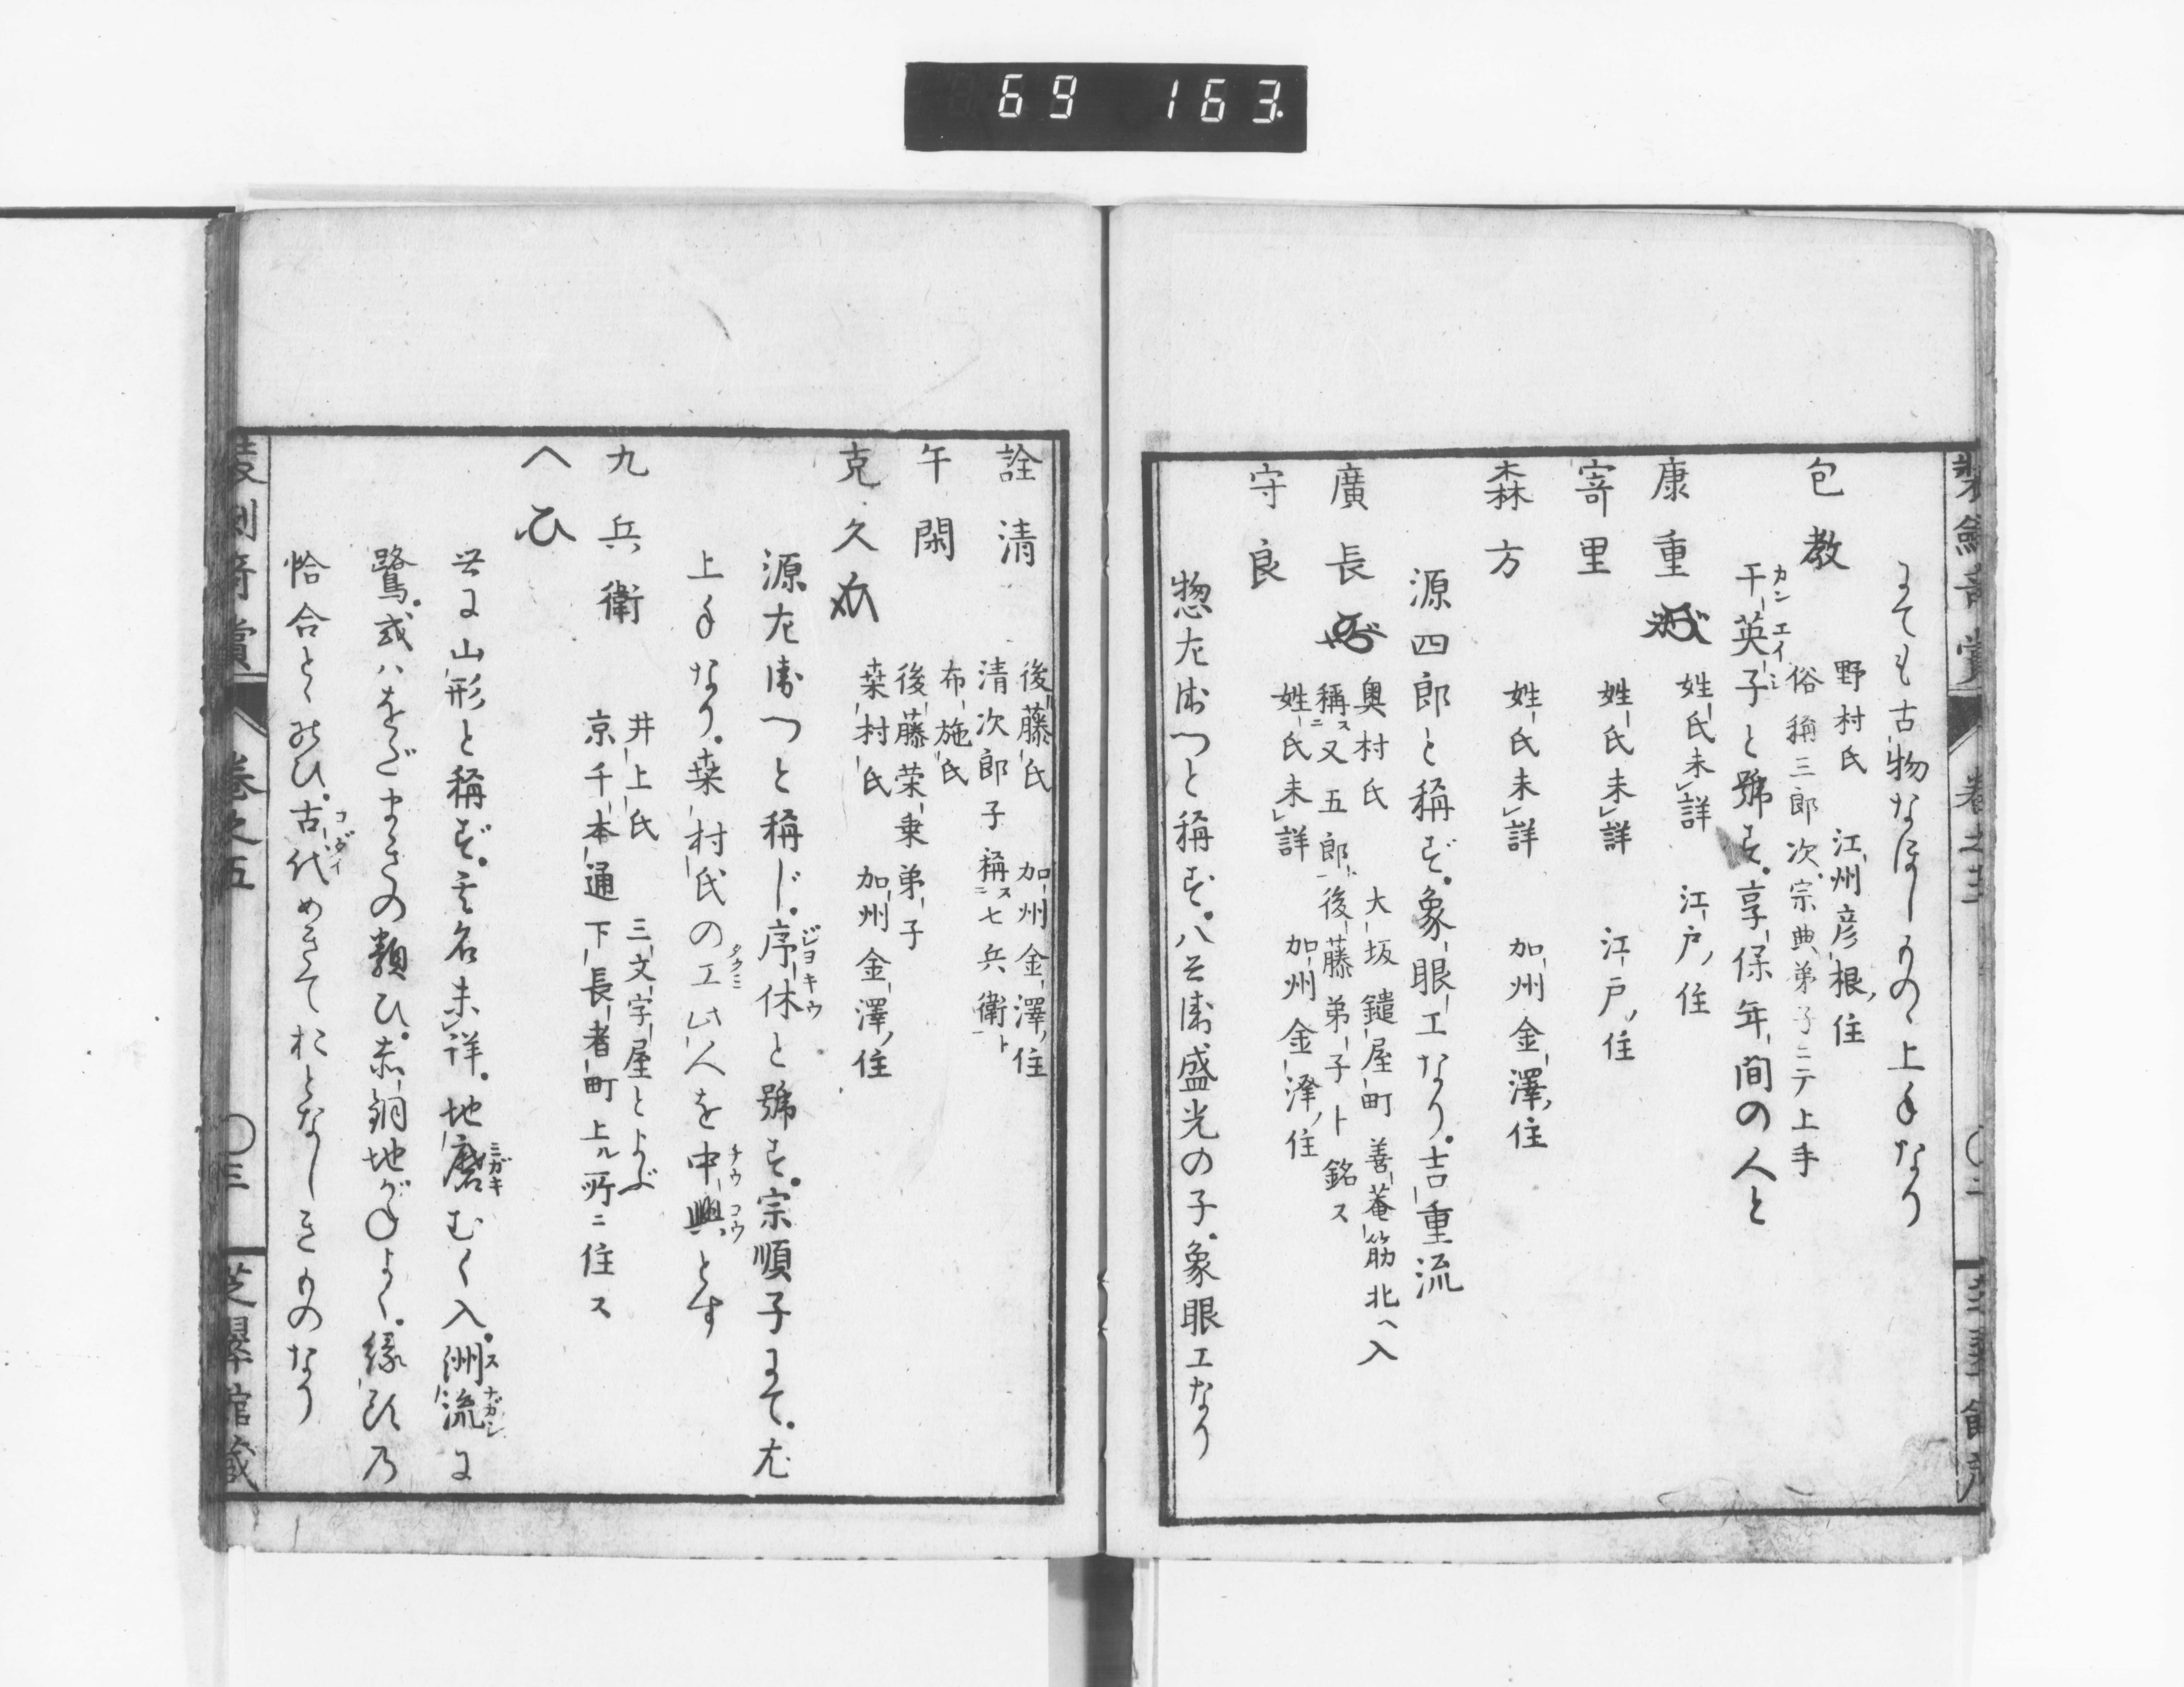 69 163
にても古物なほしものゝ上手なり
包教
野村氏 江州彦根ノ住
俗稱三郎次宗典弟子ニテ上手
干英子と號す。享保年間の人と
カンエイシ
康重
姓氏未詳 江戸ノ住
寄里
姓氏未詳 江戸ノ住
森方
姓氏未詳 加州金澤ノ住
源四郎と稱ず。象眼工なり。吉重流
廣長
奥村氏 大坂鑓屋町善菴筋北ヘ入
稱ス二又五郎一ト後藤弟子ト銘ス
守良
姓氏未詳 加州金澤ノ住
惣左衛つと稱ず。八兵衛盛光の子。象眼工なり
詮清
後藤氏 加州金澤ノ住
清次郎子稱ス二七兵衛一ト
午閑
布施氏
後藤荣乗弟子
克久
桒村氏 加州金澤ノ住
源左衛つと稱じ。序休と號す。宗順子にて。尤
ジヨキウ
上手なり。桒村氏の工此人を中興とす
タクミ
チウコウ
九兵衛
井上氏 三文字屋とよぶ
京千本通下長者町上ル所ニ住ス
へひ
世に山形と稱ず。其名未詳。地磨むく入。洲流に
ミガキ
スナガシ
鷺。或ハをだまきの類ひ。赤銅地がねよく。縁頭乃
恰合とゝのひ。古代めきておとなしきものなり
コダイ
装劍奇賞 卷之五 〇三 芝翠館藏